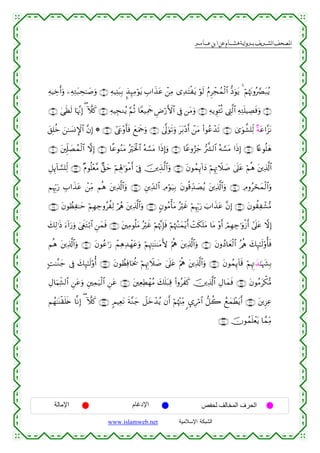 المصحف الشريف برواية هشام عن ابن عامر
يُبَصَّرُونَهُمْ ۚ يَوَدُّ ٱلْمُجْرِمُ لَوْ يَفْتَدِى مِنْ عَذَابِ يَوْمِئِذٍۭ بِبَنِيهِ ۝ وَصَٰحِبَتِهِۦ وَأَخِيهِ
۝ وَفَصِيلَتِهِ ٱلَّتِى تُـْٔوِيهِ ۝ وَمَن فِى ٱلْأَرْضِ جَمِيعًا ثُمَّ يُنجِيهِ ۝ كَلَّآ ۖ إِنَّهَا لَظَىٰ
۝ نَزَّاعَةٌ لِّلشَّوَىٰ ۝ تَدْعُوا۟ مَنْ أَدْبَرَ وَتَوَلَّىٰ ۝ وَجَمَعَ فَأَوْعَىٰٓ ۝ * إِنَّ ٱلْإِنسَٰنَ خُلِقَ
هَلُوعًا ۝ إِذَا مَسَّهُ ٱلشَّرُّ جَزُوعًا ۝ وَإِذَا مَسَّهُ ٱلْخَيْرُ مَنُوعًا ۝ إِلَّا ٱلْمُصَلِّينَ ۝
ٱلَّذِينَ هُمْ عَلَىٰ صَلَاتِهِمْ دَآئِمُونَ ۝ وَٱلَّذِينَ فِىٓ أَمْوَٰلِهِمْ حَقٌّ مَّعْلُومٌ ۝ لِّلسَّآئِلِ
وَٱلْمَحْرُومِ ۝ وَٱلَّذِينَ يُصَدِّقُونَ بِيَوْمِ ٱلدِّينِ ۝ وَٱلَّذِينَ هُم مِّنْ عَذَابِ رَبِّهِم
مُّشْفِقُونَ ۝ إِنَّ عَذَابَ رَبِّهِمْ غَيْرُ مَأْمُونٍ ۝ وَٱلَّذِينَ هُمْ لِفُرُوجِهِمْ حَٰفِظُونَ
۝ إِلَّا عَلَىٰٓ أَزْوَٰجِهِمْ أَوْ مَا مَلَكَتْ أَيْمَٰنُهُمْ فَإِنَّهُمْ غَيْرُ مَلُومِينَ ۝ فَمَنِ ٱبْتَغَىٰ وَرَآءَ ذَٰلِكَ
فَأُو۟لَٰٓئِكَ هُمُ ٱلْعَادُونَ ۝ وَٱلَّذِينَ هُمْ لِأَمَٰنَٰتِهِمْ وَعَهْدِهِمْ رَٰعُونَ ۝ وَٱلَّذِينَ هُم
بِشَهَٰدَتِهِمْ قَآئِمُونَ ۝ وَٱلَّذِينَ هُمْ عَلَىٰ صَلَاتِهِمْ يُحَافِظُونَ ۝ أُو۟لَٰٓئِكَ فِى جَنَّٰتٍ
مُّكْرَمُونَ ۝ فَمَالِ ٱلَّذِينَ كَفَرُوا۟ قِبَلَكَ مُهْطِعِينَ ۝ عَنِ ٱلْيَمِينِ وَعَنِ ٱلشِّمَالِ
عِزِينَ ۝ أَيَطْمَعُ كُلُّ ٱمْرِئٍ مِّنْهُمْ أَن يُدْخَلَ جَنَّةَ نَعِيمٍ ۝ كَلَّآ ۖ إِنَّا خَلَقْنَٰهُم
مِّمَّا يَعْلَمُونَ ۝
الحرف المخالف لحفص الإدغام الإمالة
الشبكة الاسلامية www.islamweb.net